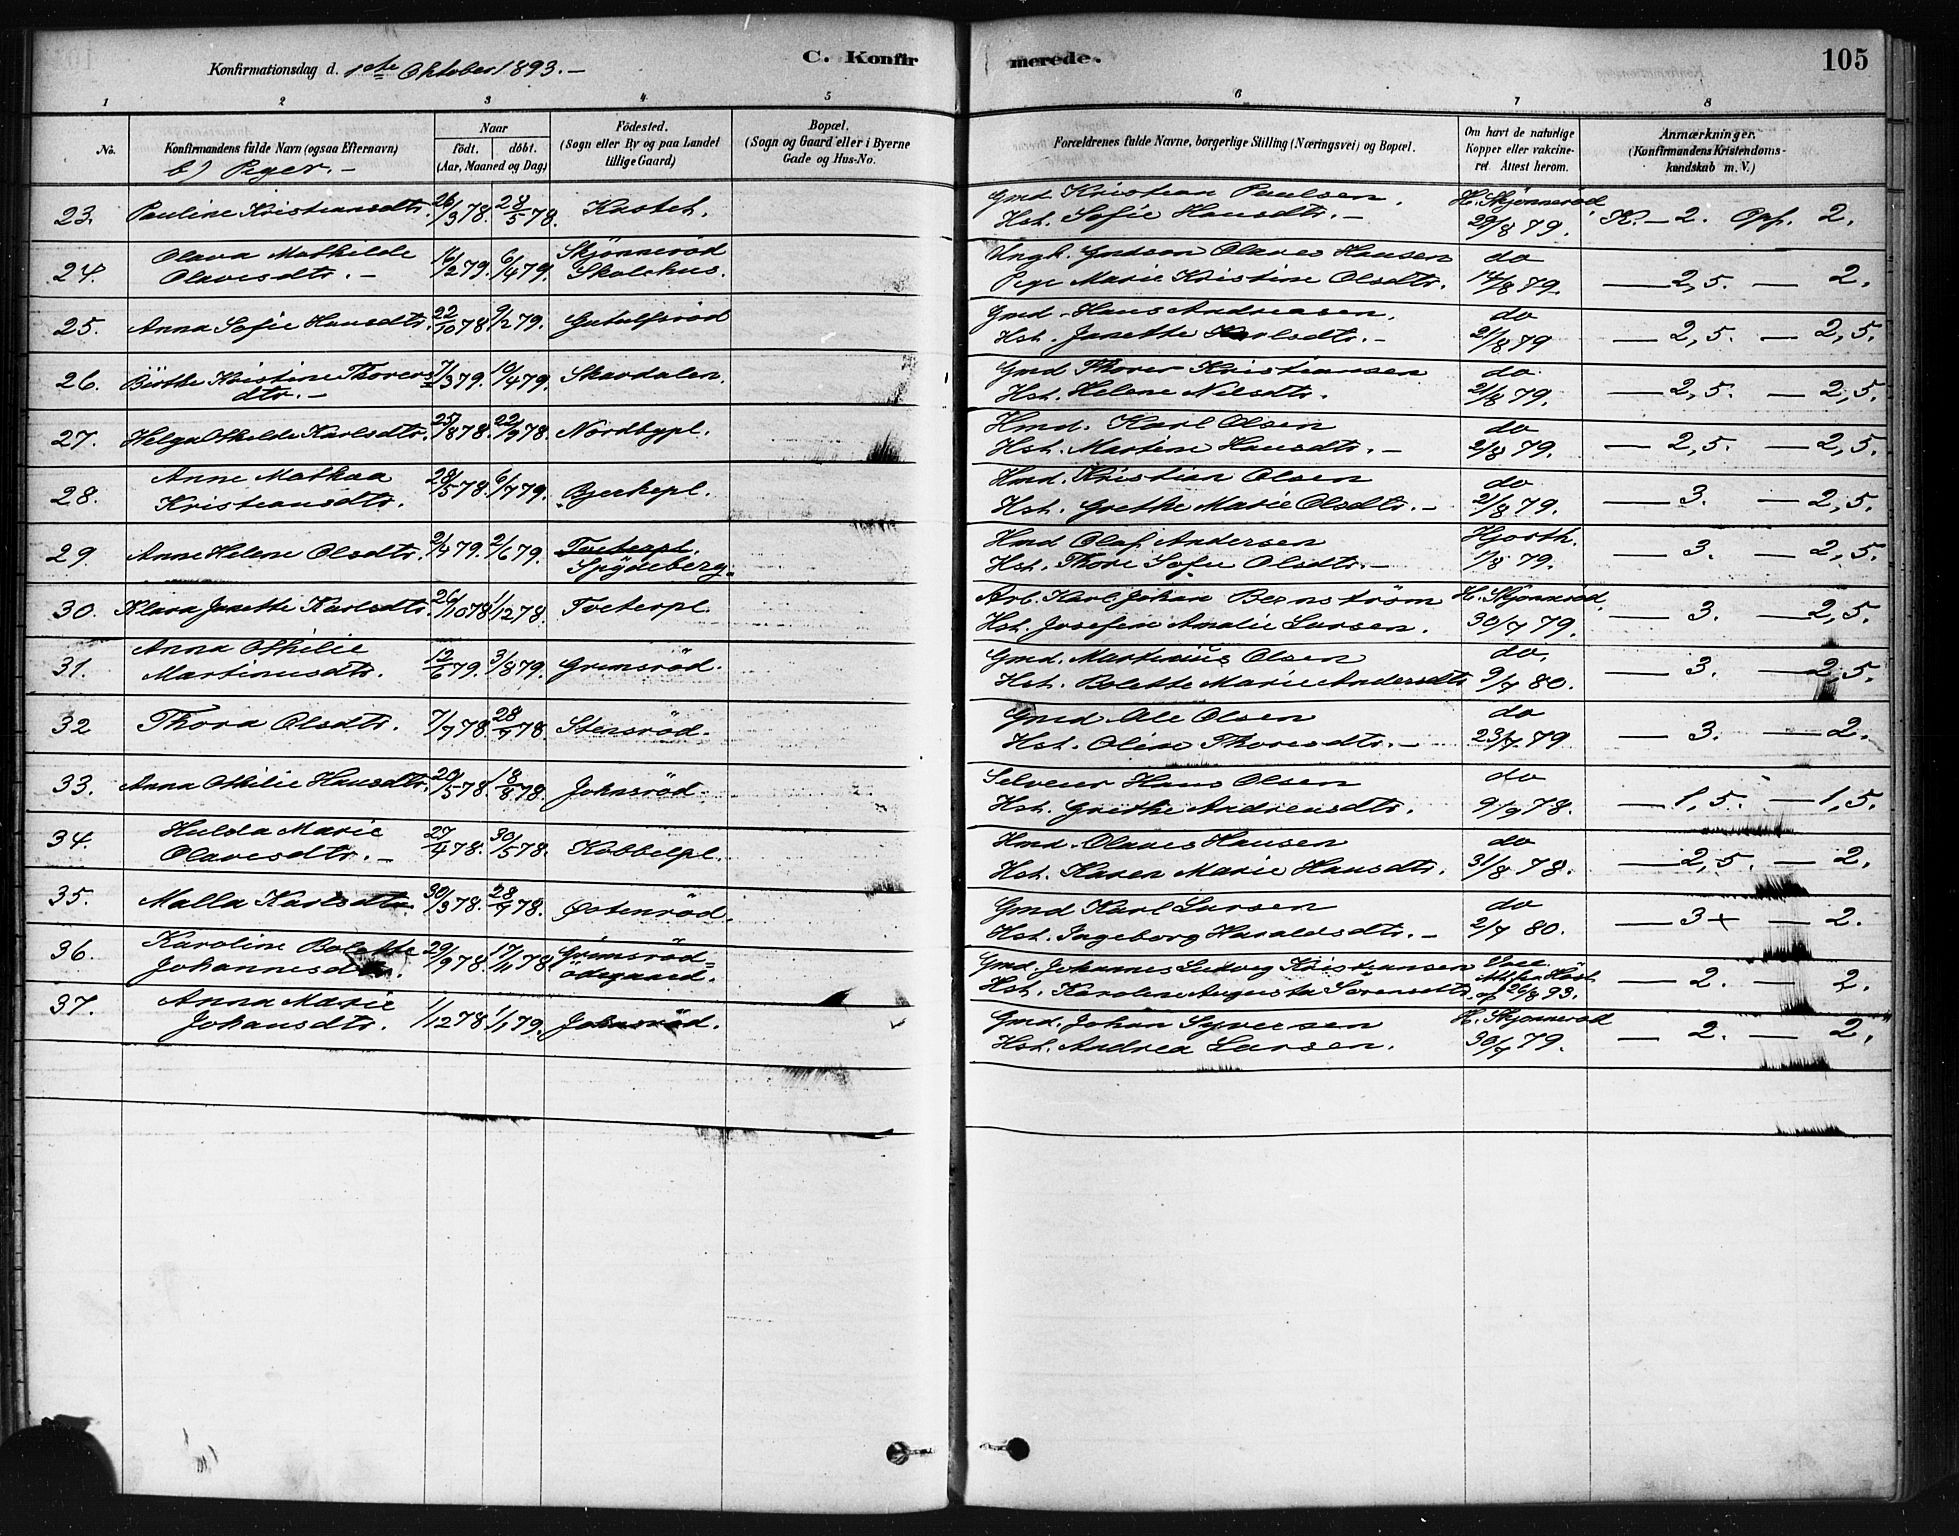 Konfirmationsdag d. 1ste Oktober 1893. –
C. Konfirmerede.
105
1 2 3 4 5 6 7 8
No.
Konfirmandens fulde Navn (ogsaa Efternavn)
b) Piger. –
Naar
Födt. döbt.
(Aar, Maaned og Dag)
Födested.
(Sogn eller By og paa Landet
tillige Gaard)
Bopæl.
(Sogn og Gaard eller i Byerne
Gade og Hus-No.
Forældrenes fulde Navne, borgerlige Stilling (Næringsvei) og Bopæl.
Om havt de naturlige
Kopper eller vakcineret
Attest herom.
Anmærkninger.
(Konfirmandens Kristendomskundskab
m. V.)
23. Pauline Kristiansdtr. 26/3 78. 28/5 78. Kastet. Gmd. Kristian Paulsen. H. Skjönneröd
Hst. Sofie Hansdtr. – 29/8 79. K. – 2. Opf. 2.
24. Olava Mathilde 16/2 79. 6/4 79. Skjönneröd Ungk. Gaardm Olaves Hansen do
Olavesdtr. – Skolehus. Pige Marie Kristine Olsdtr. 14/8 79. — 2,5. — 2.
25. Anna Sofie Hansdtr. 22/10 78 9/2 79. Gutulfsröd Gmd. Hans Andreasen. do
Hst. Janette Karlsdtr. – 21/8 79 — 2,5. — 2,5.
26. Birthe Kristine Thorers- 7/3 79. 10/4 79. Skavdalen. Gmd Thorer Kristiansen do
dtr. – Hst. Helene Nilsdtr. 21/8 79. — 2,5. — 2,5.
27. Helga Othelde Karlsdtr. 25/8 78. 22/9 78. Nordbypl. Hmd. Karl Olsen do
Hst. Martine Hansdtr. – 2/8 79. — 2,5. — 2,5.
28. Anne Mathea 28/5 78. 6/7 79. Bjerkepl. Hmd. Kristian Olsen do
Kristiansdtr. Hst. Grethe Marie Olsdtr. – 21/8 79. — 3. — 2,5.
29. Anne Helene Olsdtr. 2/4 79. 2/6 79. Tveterpl. Hmd Olaf Andersen Hjorth.
Spydeberg. Hst. Thore Sofie Olsdtr. – 1/8 79. — 3. — 2,5.
30. Klara Janette Karlsdtr. 26/10 78 1/12 78. Tveterpl. Arb. Karl Johan Bernström H. Skjönneröd.
Hst. Josefine Amalie Larsen. 30/7 79. — 3. — 2,5.
31. Anna Othilie 12/6 79. 3/8 79. Grimsröd. Gmd. Martinius Olsen do.
Martinusdtr. Hst. Bolette Marie Andersdtr 9/7 80. — 3. — 2,5.
32 Thora Olsdtr. 7/7 78. 28/7 78. Stensröd. Gmd Ole Olsen do
Hst. Oline Thoresdtr. – 23/7 79 — 3. — 2.
33. Anna Othilie Hansdtr. 20/5 78. 18/8 78. Johnsröd. Selveier Hans Olsen do
Hst. Grethe Andreasdtr. 9/9 78. — 1,5. — 1,5.
34. Hulda Marie 27/4 78. 30/5 78. Kobbelpl. Hmd. Olaves Hansen do
Olavesdtr. – Hst. Karen Marie Hansdtr. 31/8 78. — 2,5. — 2.
35. Malla Karlsdtr 30/3 78. 28/7 78. Östenröd. Gmd Karl Larsen do
Hst. Ingeborg Haraldsdtr. – 2/7 80. — 3+ — 2.
36. Karoline Bolette 29/9 78. 17/11 78 Grimsröd- Gmd. Johannes Ludvig Kristiansen
Johannesdtr. ödegaard. Hst. Karoline Augusta Sörensdtr. af 26/8 93. — 2. — 2.
37. Anna Marie 1/12 78 1/1 79. Johnsröd. Gmd. Johan Syversen H. Skjönneröd
Johansdtr. Hst. Andrea Larsen. 30/7 79. — 2. — 2.